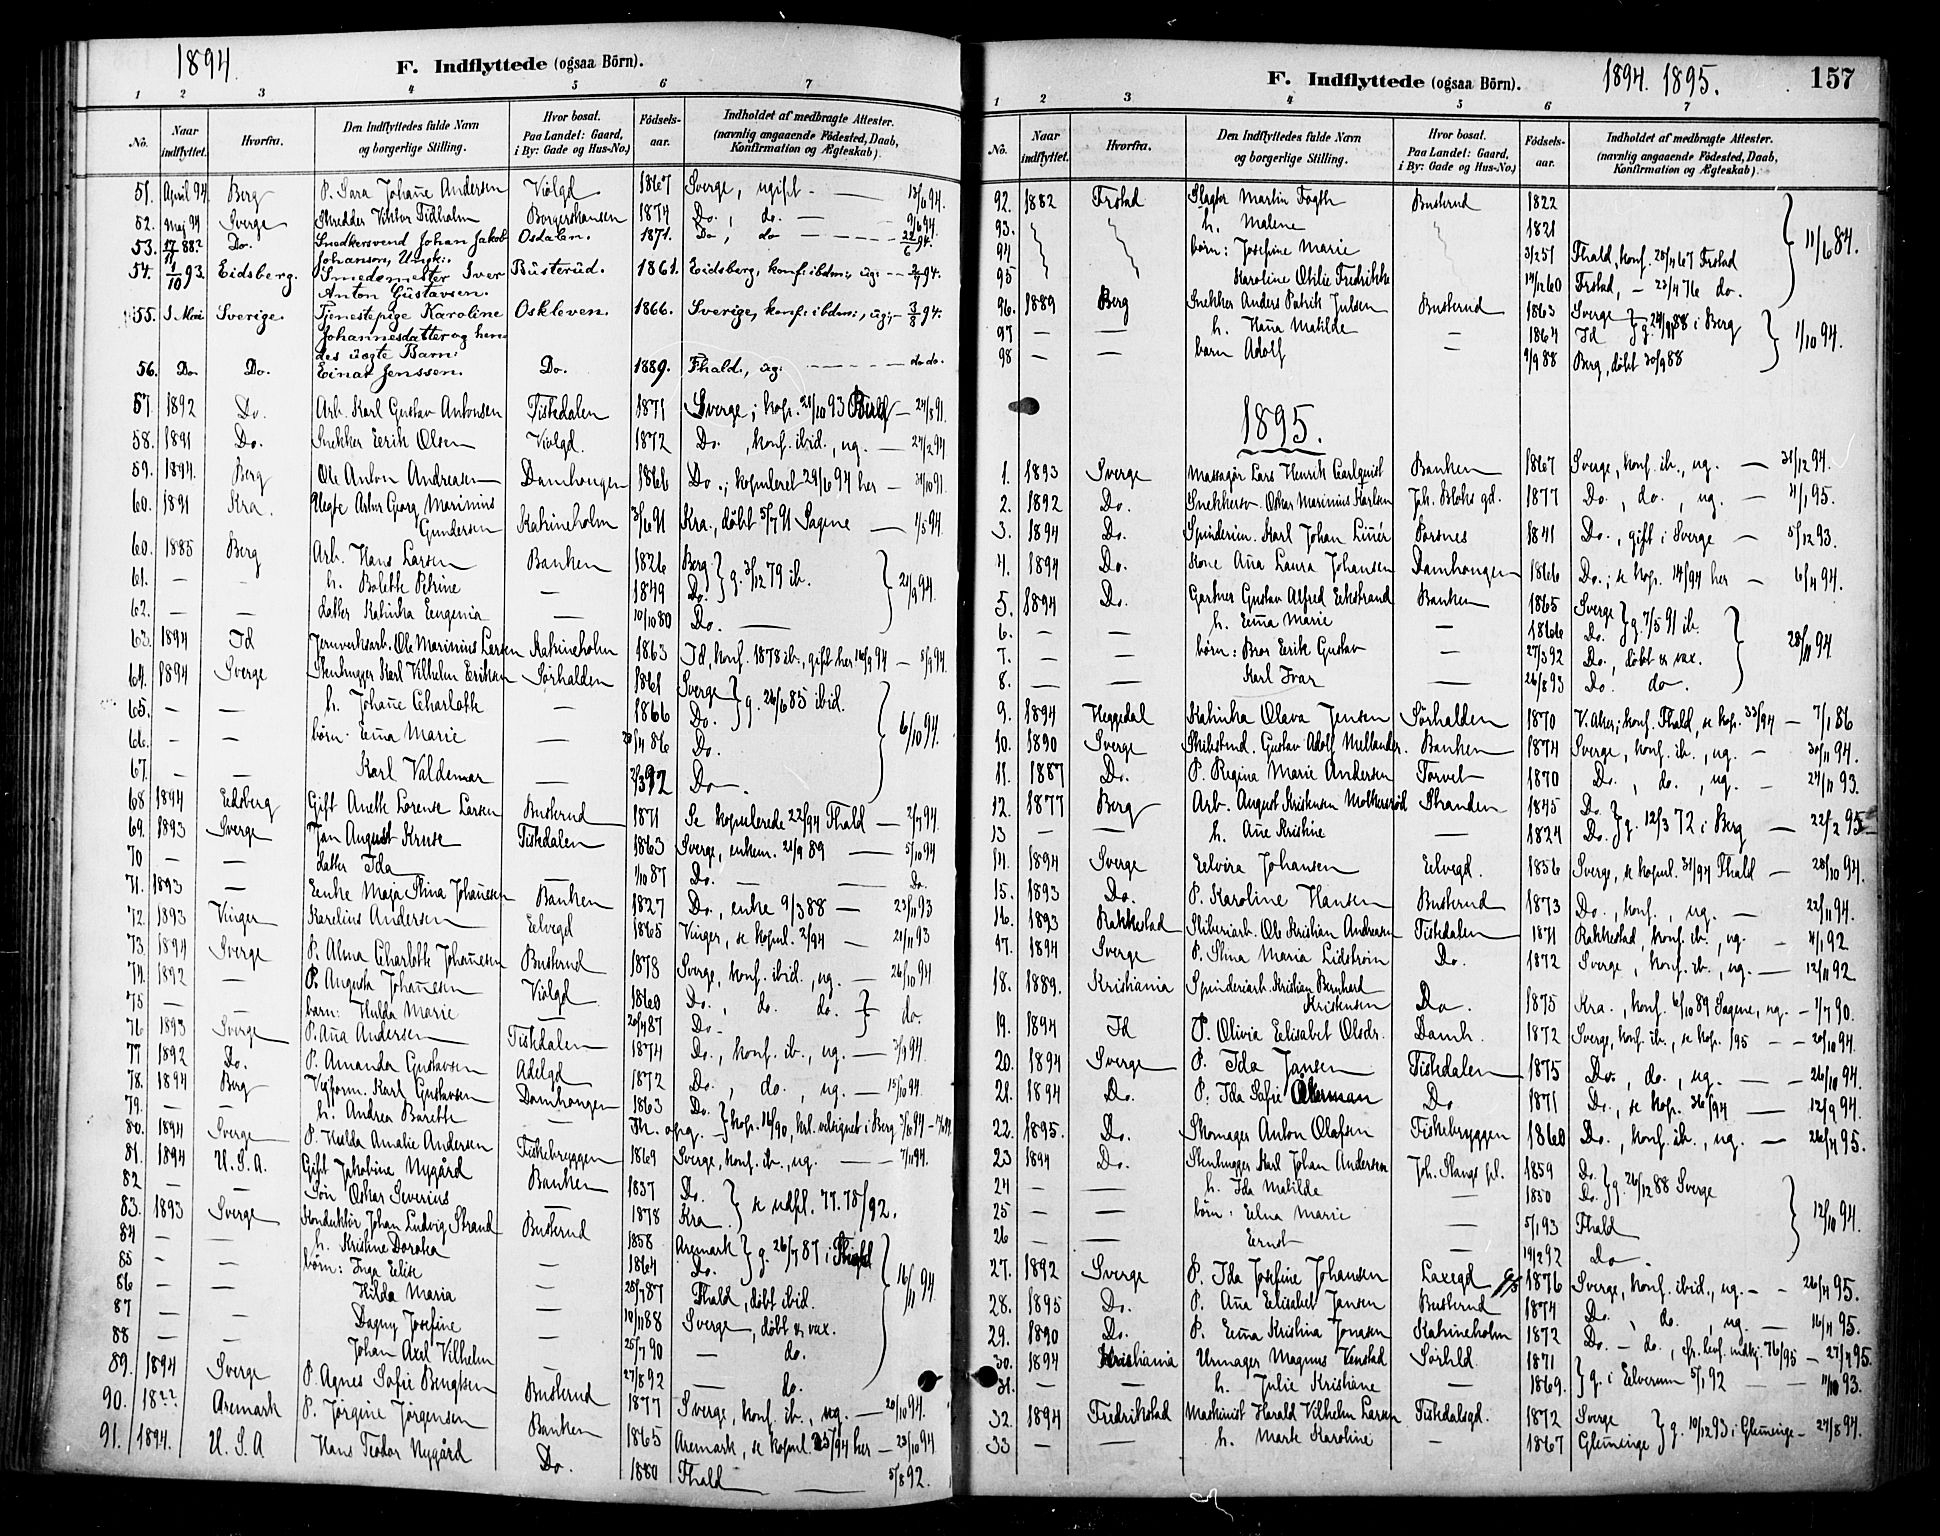 1894.
F. Indflyttede (ogsaa Börn).
1 2 3 4 5 6 7
No. Naar indflyttet. Hvorfra. Den Indflyttedes fulde Navn og borgerlige Stilling. Hvor bosat. Paa Landet: Gaard, i By: Gade og Hus-No.) Födsels-aar. Indholdet af medbragte Attester. (navnlig angaaende Födested, Daab, Konfirmation og Ægteskab).
51. April 94. Berg P. Sara Johañe Andersen Violgd 1867 Sverge, ugift — 13/6 94.
52. Maj 94 Sverge Skredder Viktor Tidholm Borgerskansen 1874 Do., do. — 9/6 94.
53. 17/11 882 Do. Snedkersvend Johan Jakob Osdalen. 1871. Do, do — 22/6 94.
Johanson, Ungk:.
54. 1/10 93. Eidsberg. Smedemester Iver Büsterüd. 1861. Eidsberg, konf: ibdm:, ug: — 2/7 94.
Anton Güstavsen.
55. 5 Mai Sverige. Tjenestepige Karoline Oskleven. 1866. Sverige, konf: ibdm:, ug: — 3/8 94.
Johannesdatter og hen-
des üægte Barn:
56. Do Do. Einar Jenssen. Do. 1889. Fhald., üg: — do do.
57. 1892 Do. Arb. Karl Gustav Antonsen Tistedalen 1871 Sverge; kop. 21/10 93 — 24/8 91.
58. 1891 Do. Snekker Eerik Olsen Violgd. 1872 Do., konf. ibid., ug. — 24/2 94
59. 1894. Berg Ole Anton Andreasen Damhougen 1866 Do.; kopuleret 24/6 94 her — 31/10 91.
60. 1891 Kra. Uegte Artur Georg Marinius
Gundersen Katrineholm 3/6 91 Kra., döbt 5/7 91 Sagene — 1/5 94.
60. 1885 Berg Arb. Hans Larsen Banken 1826 Berg } g. 3/12 79 ib. } 21/9 94.
61. — — h. Bolette Petrine — 1849 Do.
62. — — datter Katinka Eugenia 10/10 80 Do. —
63. 1894 Id Jernverksarb. Ole Marinius Larsen Katrineholm 1863 Id, konf. 1878 ib., gift her 16/9 94 — 5/9 94.
64. 1894 Sverge Stenhugger Karl Vilhelm Eriksen Sörhalden 1861 Sverge } g. 26/6 85 ibid. } 6/10 94.
65. — — h. Johañe Charlotte — 1866 Do.
66. — — börn: Ema Marie — 20/4 86 Do.
67. — — Karl Valdemar — 2/3 92 Do.
68 1894 Eidsberg Gift Anette Lorense Larsen Busterud 1871 Se kopulerede 22/94 Fhald — 2/7 94.
69. 1893 Sverge Jan August Kruse Tistedalen 1863 Sverge, enkem. 21/9 89 — 5/10 94
70 — — datter Ida 1/10 87 Do. — Do.
71. 1893 — Enke Maja Stina Johañesen Banken 1827 Do., enke 9/3 88 — 23/11 93
72. 1893 Vinger Karelius Andersen Elvegd 1865 Vinger, se kopul. 2/94 — 21/11 93
73. 1894 Sverge P. Alma Charlotte Johañesen Busterud 1878 Sverge, konf. ibid., ug. — 26/10 94
74. 1892 — P. Augusta Johañesen Violgd 1860 Do., do. do. } do.
75 — — barn: Hulda Marie — 20/4 87 Do.
76 1893 Sverge P. Aña Andersen Tistedalen 1874 Do., konf. ib., ug. — 3/9 94.
77 1892 Do. P. Amanda Gustavsen Adelgd 1872 Do., do., ug. — 15/10 94.
78. 1894 Berg Vognm. Karl Gustavsen Damhougen 1863 Do.
79. — — h. Andrea Barette
80. 1894 Sverge P. Hulda Amalie Andersen Fiskebryggen 1869 Sverge, konf. ib., ug. — 7/11 94.
81. 1894 U.S.A. Gift Jakobine Nygård Banken 1837 Do. } se udfl. 77.78/92.
82 — — Sön Oskar Severius — 1878 Kra
83. 1893 Sverge Konduktör Johan Ludvig Strand Busterud 1858 Aremark } g. 26/7 87 i } 16/11 94
84 — — h. Kristine Dorotea — 1864 Do.
85 — — börn: Inga Elise — 25/7 87 Fhald, döbt ibid.
86 — — Hilda Maria — 10/11 88 Sverge, döbt & vax.
87 — — Dagny Josefine — 25/7 90 — do.
88 — — Johan Axel Vilhelm — 27/8 92 — do.
89. 1894 Sverge P. Agnes Sofie Bengtsen Busterud 1877 Sverge, konf. ib., ug. — 20/10 94.
90. 18?? Aremark P. Jörgine Jörgensen Banken 1865 Aremark, se kopul. 25/94 her — 23/10 94
91. 1894. U.S.A Hans Teodor Nygård Do. 1880 Fhald — 5/8 92.
F. Indflyttede (ogsaa Börn). 1894. 1895. 157
1 2 3 4 5 6 7
No. Naar indflyttet. Hvorfra. Den Indflyttedes fulde Navn og borgerlige Stilling. Hvor bosat. Paa Landet: Gaard, i By: Gade og Hus-No.) Födsels-aar. Indholdet af medbragte Attester. (navnlig angaaende Födested, Daab, Konfirmation og Ægteskab).
92. 1882 Frstad Slagter Martin Fagth Busterud 1822 } 11/6 84.
93. h. Malene 1821
94 börn: Josefine Marie 3/2 51 Fhald, konf. 28/4 67 Frstad
95 Karoline Otilie Fredrikke 14/12 60 Frstad, — 23/4 76 do.
96. 1889 Berg Snekker Anders Patrik Julsen Busterud 1863 Sverge } g. 24/11 88 i Berg } 1/10 94.
97 — — h. Haña Matilde — 1864 Id
98 — — barn Adolf — 9/9 88 Berg, döbt 30/9 88
1895.
1. 1893 Sverge Massagör Lars Henrik Carlquist Banken 1867 Sverge, konf. ib., ug. — 31/12 94.
2. 1892 Do. Snekkersv. Oskar Marinius Karlsen Joh. Bloks gd. 1877 Do., do., ug. — 4/1 95.
3. 1894 Do. Spinderim. Karl Johan Linér Porsnes 1841 Do., gift i Sverge — 5/12 93.
4. 1894 Do. Kone Aña Laura Johansen Damhougen 1866 Do.; se kop. 14/94 her — 6/4 94.
5. 1894 Do. Gartner Gustav Alfred Ekstrand Banken 1865 Sverge } g. 7/5 91 ib. } 28/11 94
6. — — h. Ema Marie — 1866 Do.
7. — — börn: Bror Eerik Gustav — 27/3 92 Do., döbt & vax.
8. — — Karl Ivar — 26/8 93 Do. do.
9. 1894 Heggedal Katinka Olava Jensen Sörhalden 1870 V. Aker; konf. Fhald, se kop. 33/94 — 7/1 86
10. 1890 Sverge Gustav Adolf Mellander. Banken 1874 Sverge, konf. ib., ug. — 30/11 94.
11. 1887 Do. P. Regina Marie Andersen Torvet 1870 Do., do., ug. — 24/11 93.
12. 1877 Berg Arb. August Kristensen Molkersröd Stranden 1845 Do. } g. 12/3 72 i Berg — 22/2 95
13 — — h. Ane Kristine — 1824 Do.
14. 1894 Sverge Elvira Johansen Elvegd. 1856 Sverge, se kopul. 31/94 Fhald — 28/10 94.
15. 1893 Do. P. Karoline Hansen Busterud 1873 Do., konf., ug. — 22/11 94.
16. 1893 Rakkestad Sliberiarb. Ole Kristian Andreasen Tistedalen 1871 Rakkestad, konf. ib., ug. — 4/1 92
17. 1894 Sverge P. Stina Maria Lidström Do. 1872 Sverge, konf. ib., ug. — 12/11 92
18. 1889. Kristiania Spinderiarb. Kristian Bernhard
Kristensen Do. 1875 Kra., konf. 6/10 89 Sagene, ug. — 1/7 90.
19. 1894 Id P. Olivia Elisabet Olsdr. Damh. 1872 Sverge, konf. ib., se kop. /95 — 20/10 94.
20. 1894 Sverge P. Ida Jansen Tistedalen 1875 Do., do., ug. — 26/10 94.
21. 1894 Do. P. Ida Sofie Åkerman Do. 1871 Do., se kop. 36/94 — 12/9 94.
22. 1895. Do. Skomager Anton Olafsen Fiskebryggen 1860 Do., konf. ib., ug. — 26/4 95.
23 1894 Do. Stenhugger Karl Johan Andersen Joh. Stangs pl. 1859 Do. } g. 26/12 88 Sverge } 12/10 94.
24 — — h. Ida Matilde — 1850 Do.
25 — — börn: Elna Marie — 5/1 93 Fhald
26 — — Ernst — 19/2 92 Do.
27. 1892 Sverge P. Ida Josefine Johansen Laxegd 1876 Sverge, konf. ibid., ug. — 26/4 95.
28. 1895 Do. P. Aña Elisabet Jansen Busterud 1874 Do., do., ug. — 16/4 95.
29. 1890 Do. P. Ema Kristina Jonasen Katrineholm 1872 Do. — do., 76/95 — 27/7 95.
30. 1894 Kristiania Urmager Magnus Venstad Sörhld. 1871 } g. i Elverum 5/1 92 — 11/10 93.
31. — — h. Julie Kristiane 1869.
32. 1894 Fredrikstad Maskinist Harald Vilhelm Larsen Tistedalsgd. 1872 Sverge } g. 10/12 93 i Glemminge — 27/8 94.
33 — — h. Marte Karoline — 1867 Glemminge